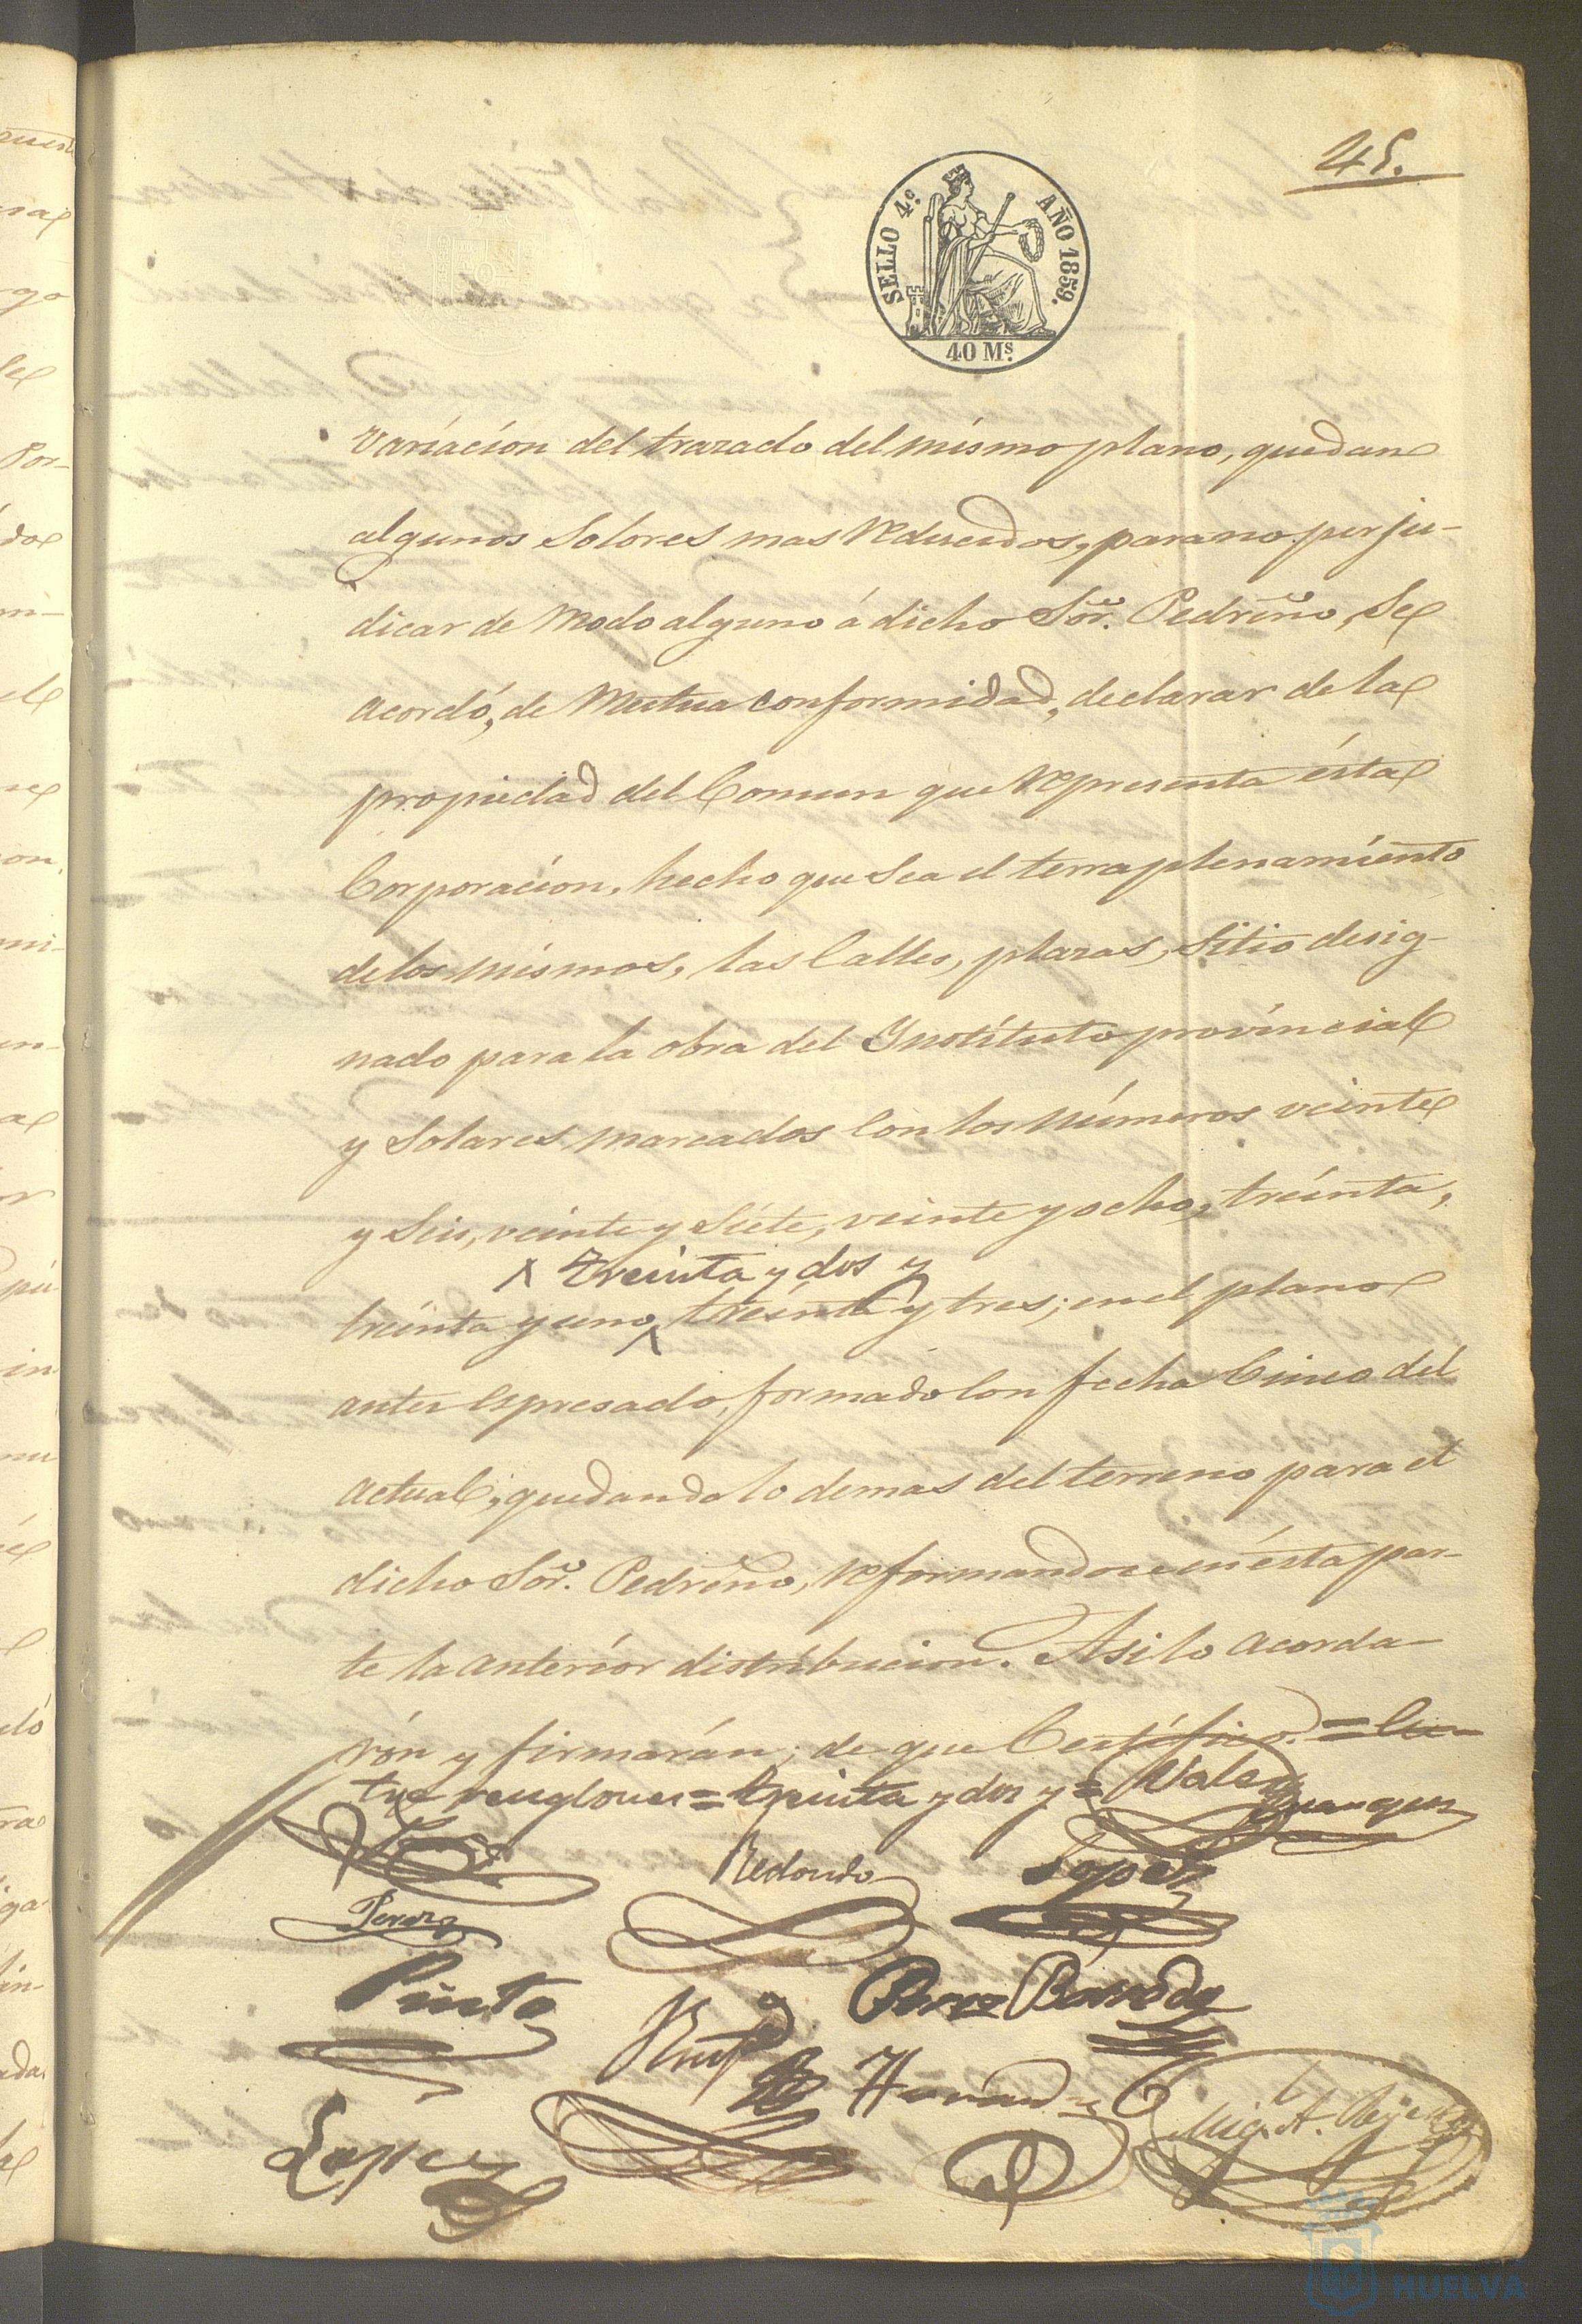 45.
SELLO 4º AÑO 1859.
40 Ms.
Variacion del trazado del mismo plano, quedan
algunos Solores mas Reducidos, para no perju-
dicar de Modo alguno á dicho Sor. Pedreño, Se
acordó, de Mutua conformidad, declarar de la
propiedad del Comun que Representa ésta
Corporacion, hecho que Sea el terraplenamiento
de los mismos, las Calles, plazas, Sitio desig-
nado para la obra del Ynstituto provincial
y Solares marcados Con los números veinte
y Seis, veinte y Siete, veinte y ocho, treinta,
treinta y dos y
treinta y uno, treinta y tres; en el plano
antes espresado, formado Con fecha Cinco del
actual; quedando lo demas del terreno para el
dicho Sor. Pedreño, Reformandose en ésta par-
te la anterior distribucion. Asi lo acorda-
rón y firmarán; de que Certífico. = En-
tre renglones = treinta y dos y = Vale
Redondo Lopez
Perez
Pinto Perez Barroda
Hernandz
Lopez
HUELVA